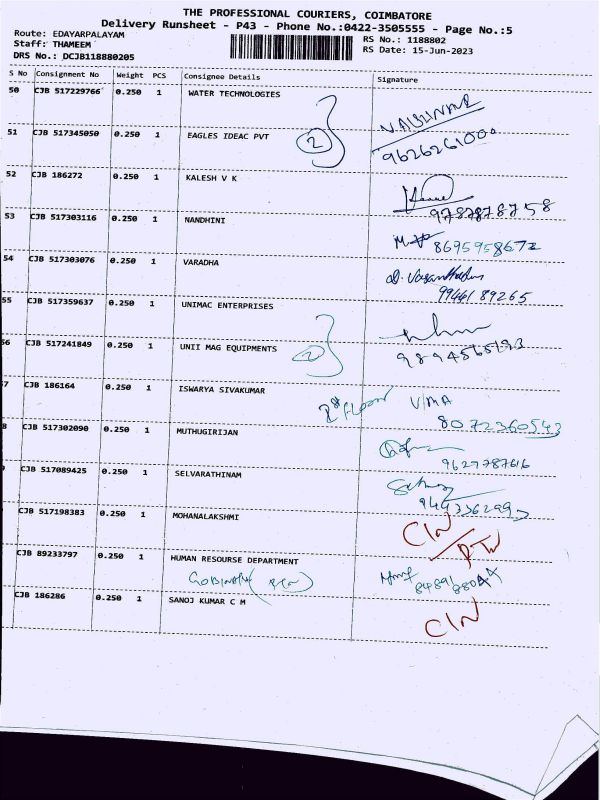 THE PROFESSIONAL COURIERS, COIMBATORE
Delivery Runsheet - P43 - Phone No.:0422-3505555 - Page No.:5
Route: EDAYARPALAYAM
RS No.: 1188802
Staff: THAMEEM
RS Date: 15-Jun-2023
DRS No.: DCJB118880205
S No Consignment No Weight PCS Consignee Details Signature
50 CJB 517229766 0.250 1 WATER TECHNOLOGIES
51 CJB 517345050 0.250 1 EAGLES IDEAC PVT 2
52 CJB 186272 0.250 1 KALESH V K
9787878758
53 CJB 517303116 0.250 1 NANDHINI
8695958672
54 CJB 517303076 0.250 1 VARADHA
9944189265
55 CJB 517359637 0.250 1 UNIMAC ENTERPRISES
56 CJB 517241849 0.250 1 UNII MAG EQUIPMENTS 2
9894565193
7 CJB 186164 0.250 1 ISWARYA SIVAKUMAR
FLOOR UMA
8072360543
8 CJB 517302090 0.250 1 MUTHUGIRIJAN
9629787616
CJB 517089425 0.250 1 SELVARATHINAM
CJB 517198383 0.250 1 MOHANALAKSHMI
CIN
CJB 89233797 0.250 1 HUMAN RESOURSE DEPARTMENT
CJB 186286 0.250 1 SANOJ KUMAR C M
CIN